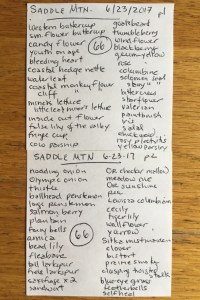 SADDLE MTN. 6/23/2017 p1
western buttercup
sm flower buttercup
candy flower
youth on age
bleeding heart
coastal hedge nettle
waterleaf
coastal monkey flower
cliff " "
miners lettuce
little leaf miners lettuce
inside out flower
false lily of the valley
fringe cup
cow parsnip
66
goatsbeard
thimbleberry
windflower
blackberry
rose
columbine
Solomon
" star "
starflower
valerian
paintbrush
iris
salal
chickweed
rosy plectritis
yellow parsley
SADDLE MTN 6-23-17 p2
nodding onion
Olympic onion
thistle
penstemon
penstemon
salmonberry
plantain
fairy bells
arnica
bead lily
fleabane
tall larkspur
larkspur
saxifrage x 2
sandwort
66
OR checker mallow
meadow rue
OR sunshine
pea
cicely
tiger lily
wallflower
yarrow
Sitka mistmaiden
clover
bistort
prairie smoke
clasping twisted stalk
blue eye grass
featherbells
selfheal